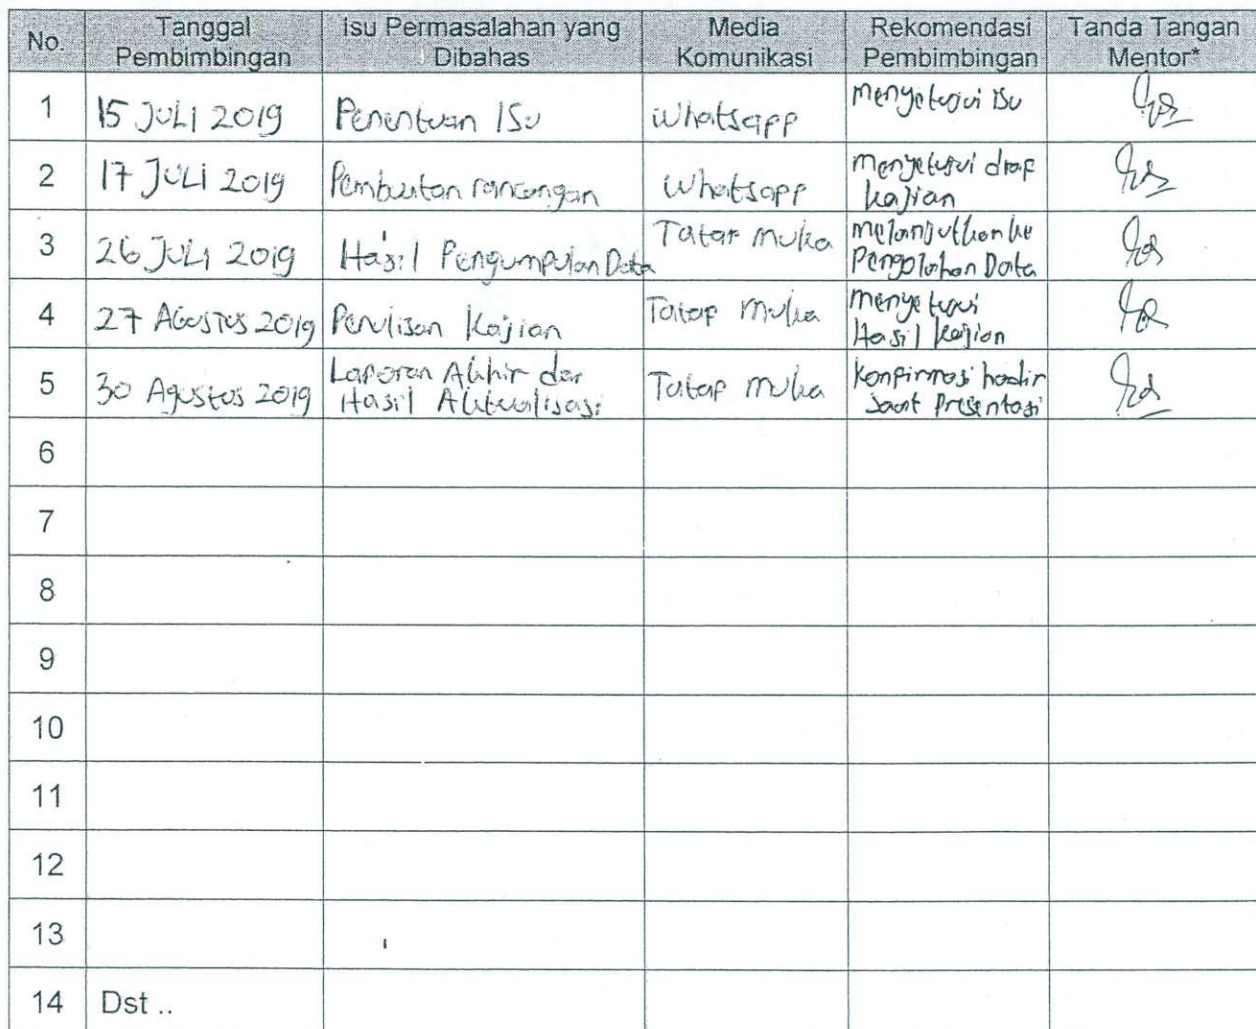 No. Tanggal Pembimbingan Isu Permasalahan yang Dibahas Media Komunikasi Rekomendasi Pembimbingan Tanda Tangan Mentor*
1 15 JULI 2019 Penentuan ISU Whatsapp menyetujui isu
2 17 JULI 2019 Pembuatan rancangan Whatsapp menyetujui draf kajian
3 26 JULI 2019 Hasil Pengumpulan Data Tatap muka melanjutkan ke Pengolahan Data
4 27 AGUSTUS 2019 Penulisan Kajian Tatap muka menyetujui Hasil kajian
5 30 Agustus 2019 Laporan Akhir dar Hasil Aktualisasi Tatap muka Konfirmasi hadir saat Presentasi
6
7
8
9
10
11
12
13
14 Dst ..